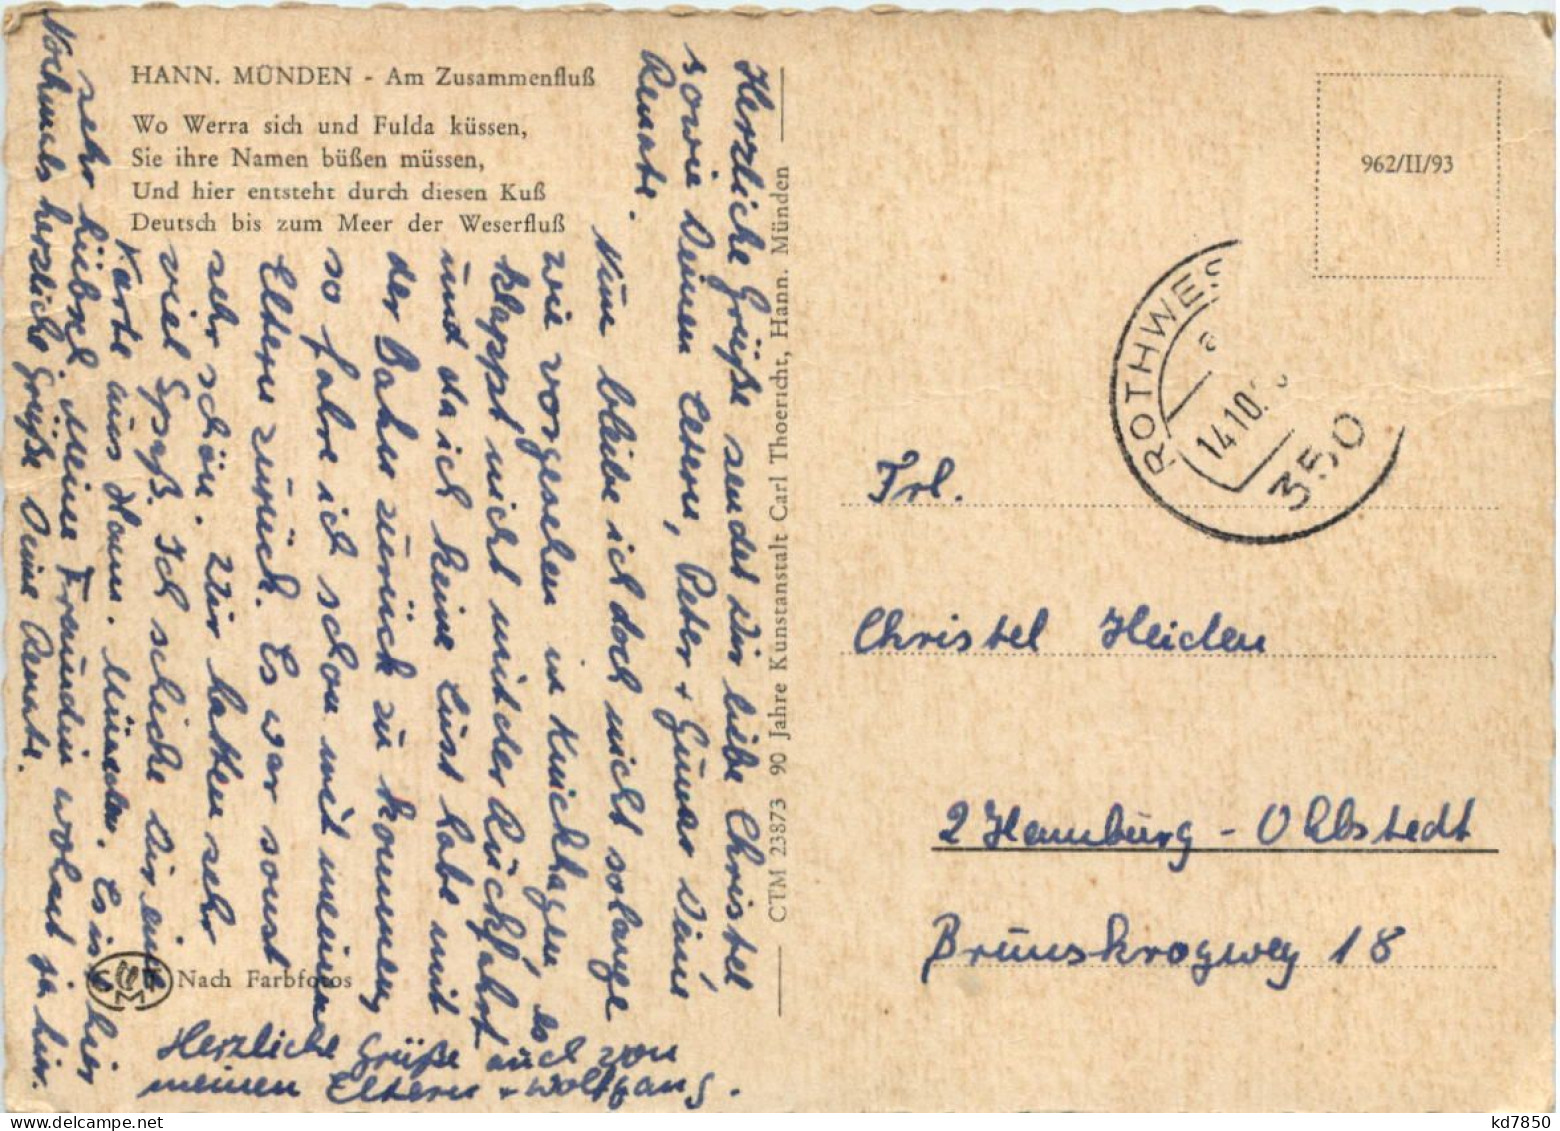 HANN. MÜNDEN - Am Zusammenfluß
Wo Werra sich und Fulda küssen,
Sie ihre Namen büßen müssen,
Und hier entsteht durch diesen Kuß
Deutsch bis zum Meer der Weserfluß
Herzliche Grüße sendet Dir liebe Christel
sowie Deinen Eltern, Peter + Gunar Deine
Renate.
Nun bleibe ich doch nicht solange
wie vorgesehen in Knickhagen, es
klappt nicht mit der Rückfahrt
und da ich keine Lust habe mit
der Bahn zurück zu kommen,
so fahre ich schon mit meinen
Eltern zurück. Es war sonst
sehr schön. Wir hatten sehr
viel Spaß. Ich schicke Dir eine
Karte aus Hann. Münden. Es ist hier
sehr hübsch. Meine Freundin wohnt ja hier.
Nochmals herzliche Grüße Deine Renate.
Herzliche Grüße auch von
meinen Eltern + Wolfgang.
Nach Farbfotos
CTM 23873 90 Jahre Kunstanstalt Carl Thoericht, Hann. Münden
962/II/93
ROTHWES
a
14.10.
350
Frl.
Christel Heiden
2 Hamburg - Ohlstedt
Brunskrogweg 18
kd7850